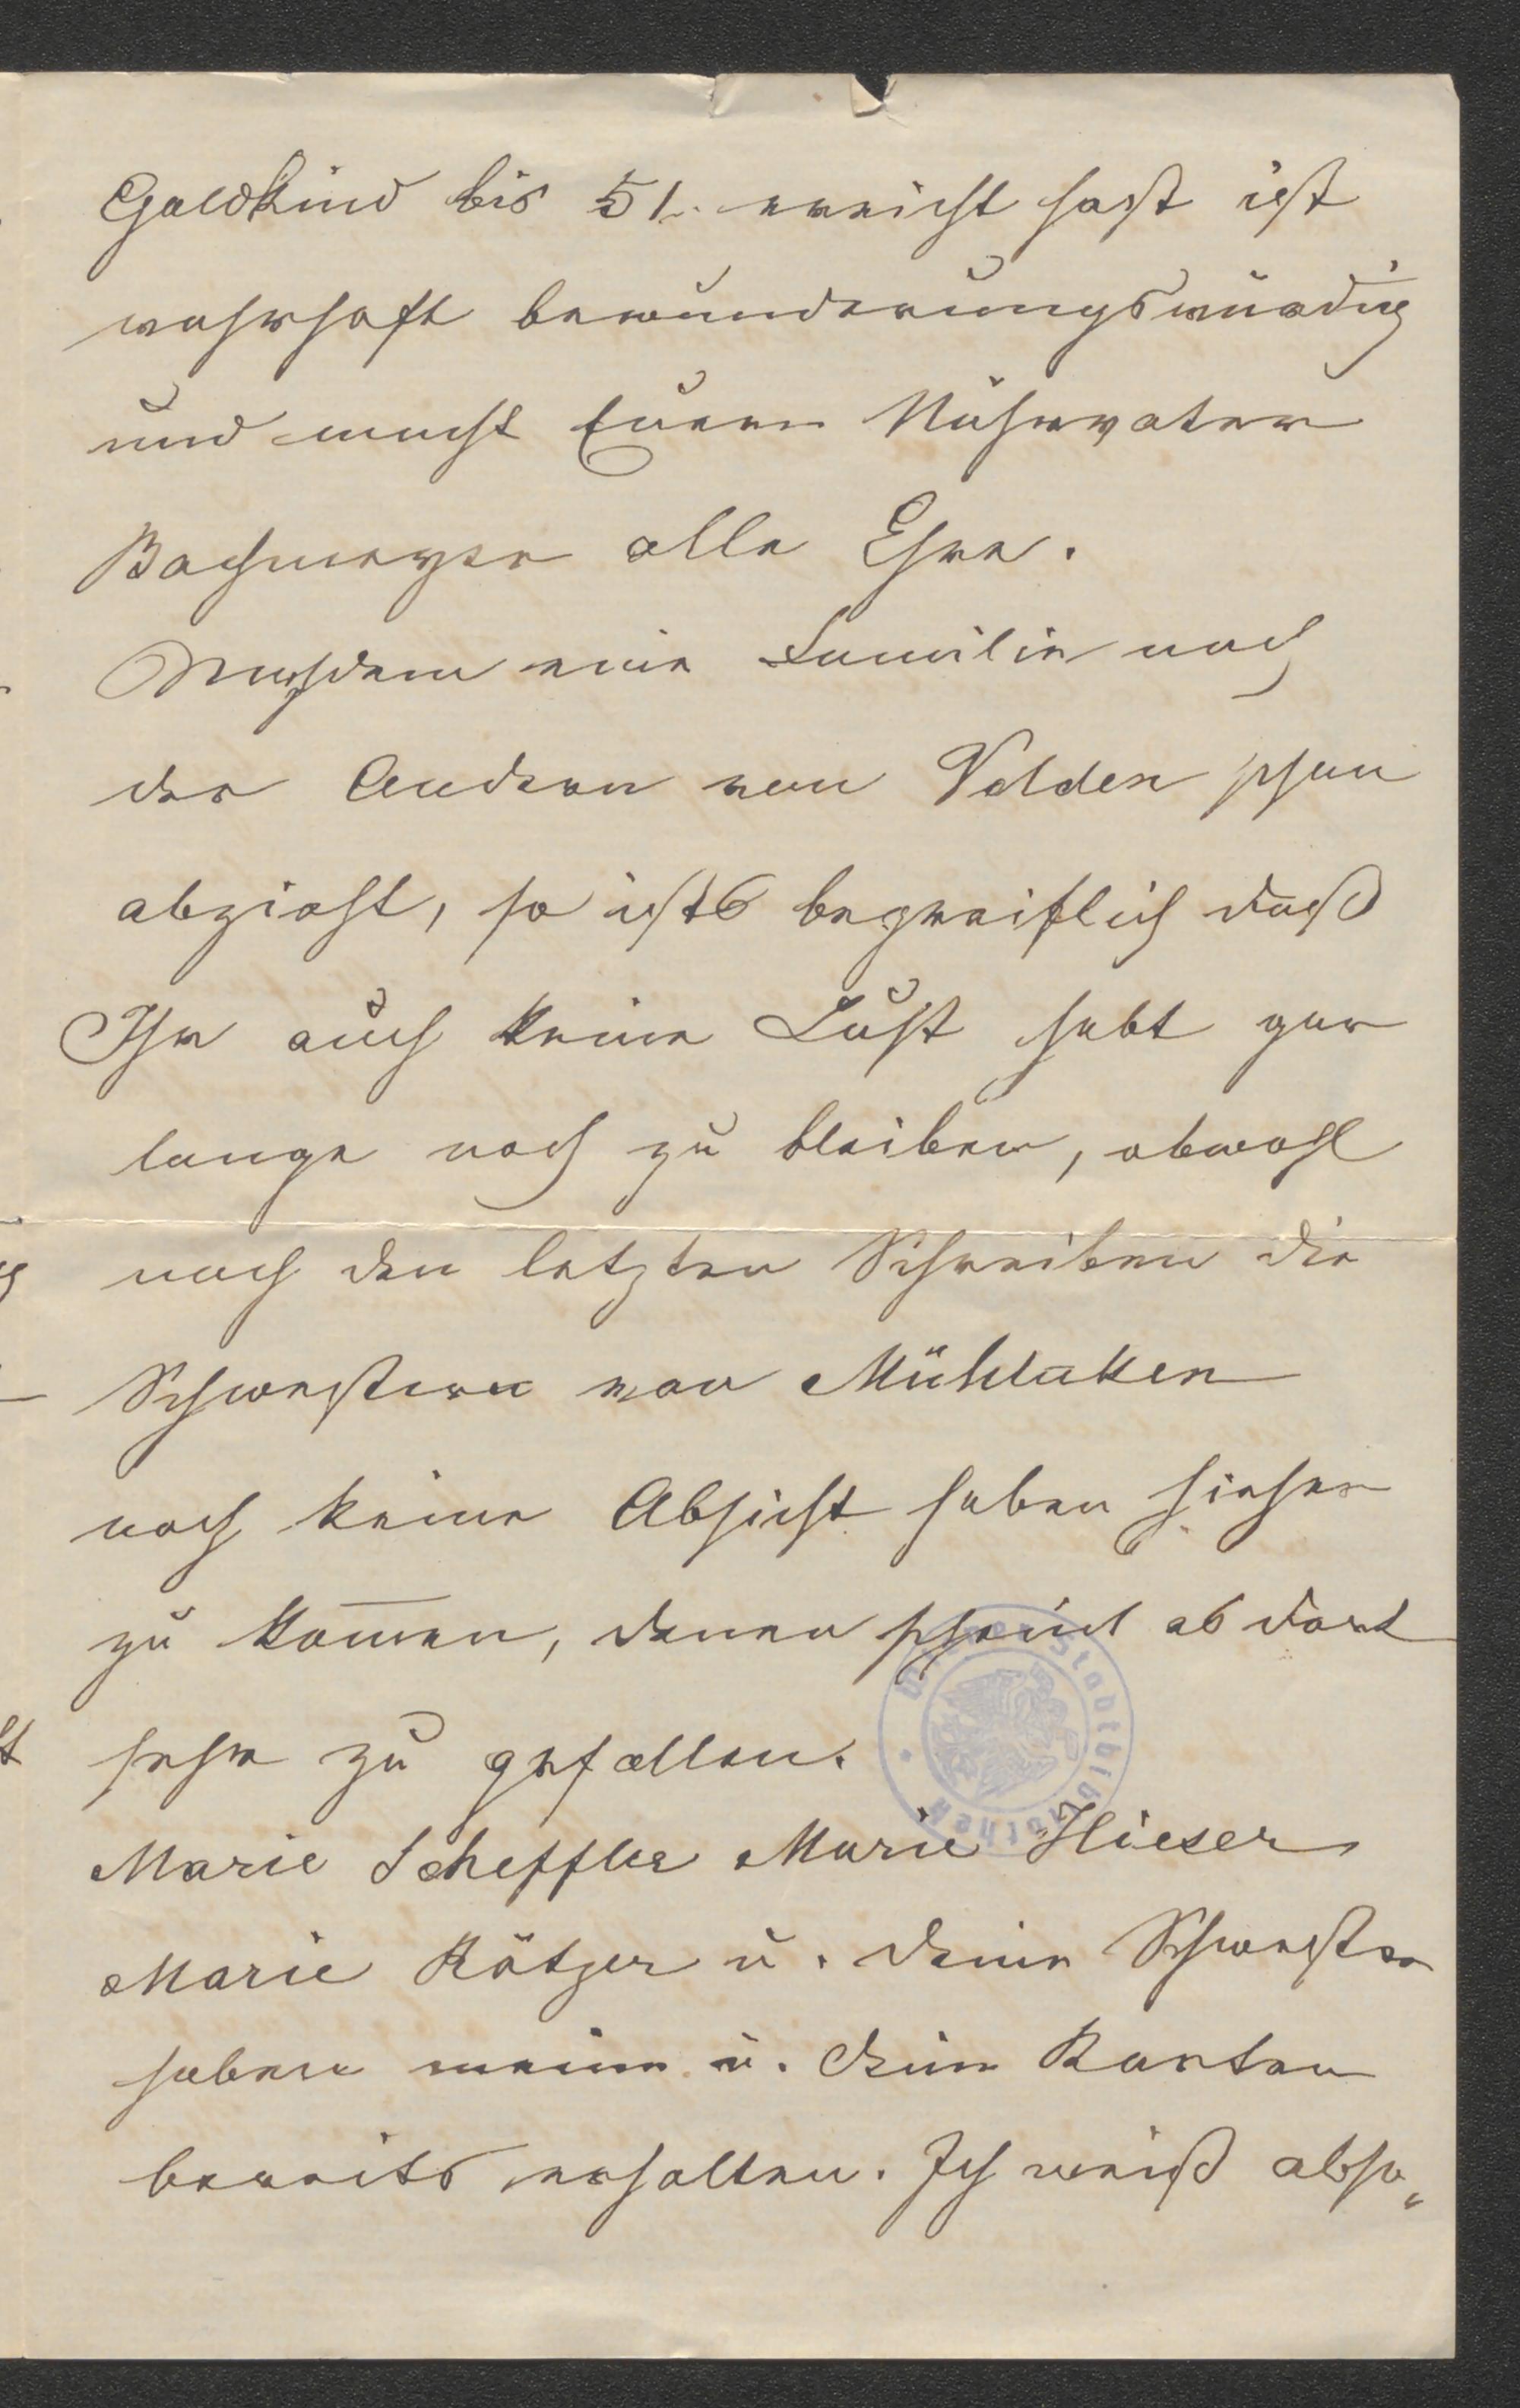 Goldkind bis 51. erreicht hast ist
wahrhaft bewunderungswürdig
und macht Euern Nährvater
Bachmayer alle Ehre.
Nachdem eine Familie nach
der Andern von Velden schon
abzieht, so ists begreiflich daß
Ihr auch keine Lust habt gar
lange noch zu bleiben, obwohl
nach den letzten Schreiben die
Schwestern von Mühllaken
noch keine Absicht haben hieher
zu kom̅en, denen scheint es dort
sehr zu gefallen.
Marie Scheffler Marie Hieser
Marie Rötzer u. Deine Schwester
haben meine u. Deine Karten
bereits erhalten. Ich weiß abso„
Wiener Stadtbibliothek